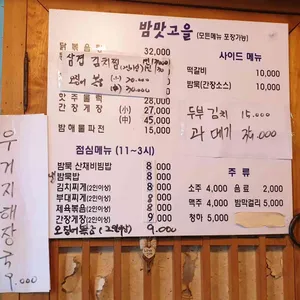 밤맛고을 (모든메뉴 포장가능)
닭볶음탕 32,000
삼겹 김치찜
오징어볶음 (小) 20.000
(大) 30.000
맛 주물럭 28,000
간장게장 (小) 27,000
(中) 45,000
밤해물파전 15,000
점심메뉴 (11~3시)
밤묵 산채비빔밥 8,000
밤묵밥 8,000
김치찌개(2인이상) 8,000
부대찌개(2인이상) 8,000
제육볶음(2인이상) 8,000
간장게장(2인이상) 9,000
오징어볶음 (2인이상) 9.000
사이드 메뉴
떡갈비 10,000
밤묵(간장소스) 10,000
두부 김치 15.000
과메기
주 류
소주 4,000 음료 2,000
맥주 4,000 밤막걸리 5,000
청하 5,000
우거지해장국
9.000